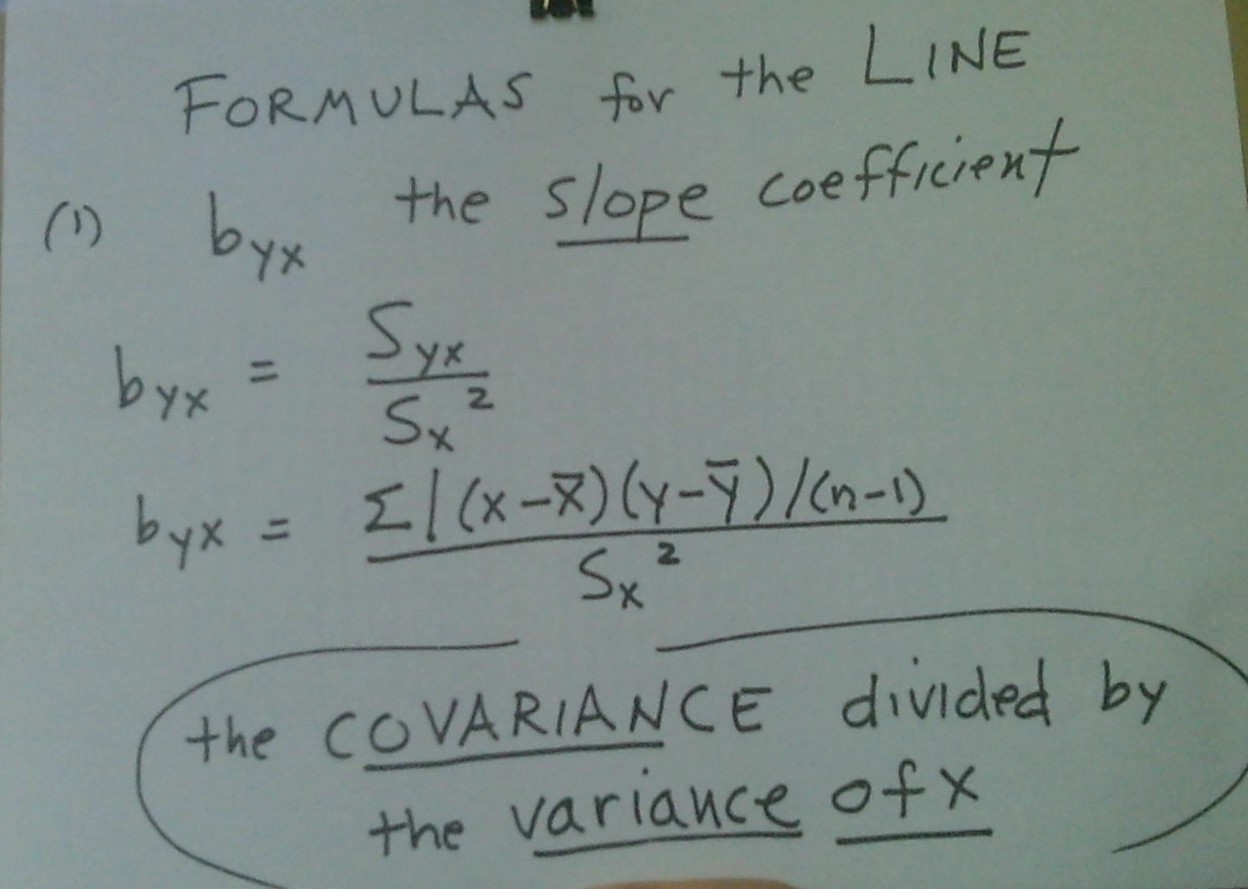 FORMULAS for the LINE
(1) byx the slope coefficient
byx = Syx / Sx²
byx = Σ|(x-x̄)(y-ȳ)/(n-1) / Sx²
the COVARIANCE divided by
the variance of x